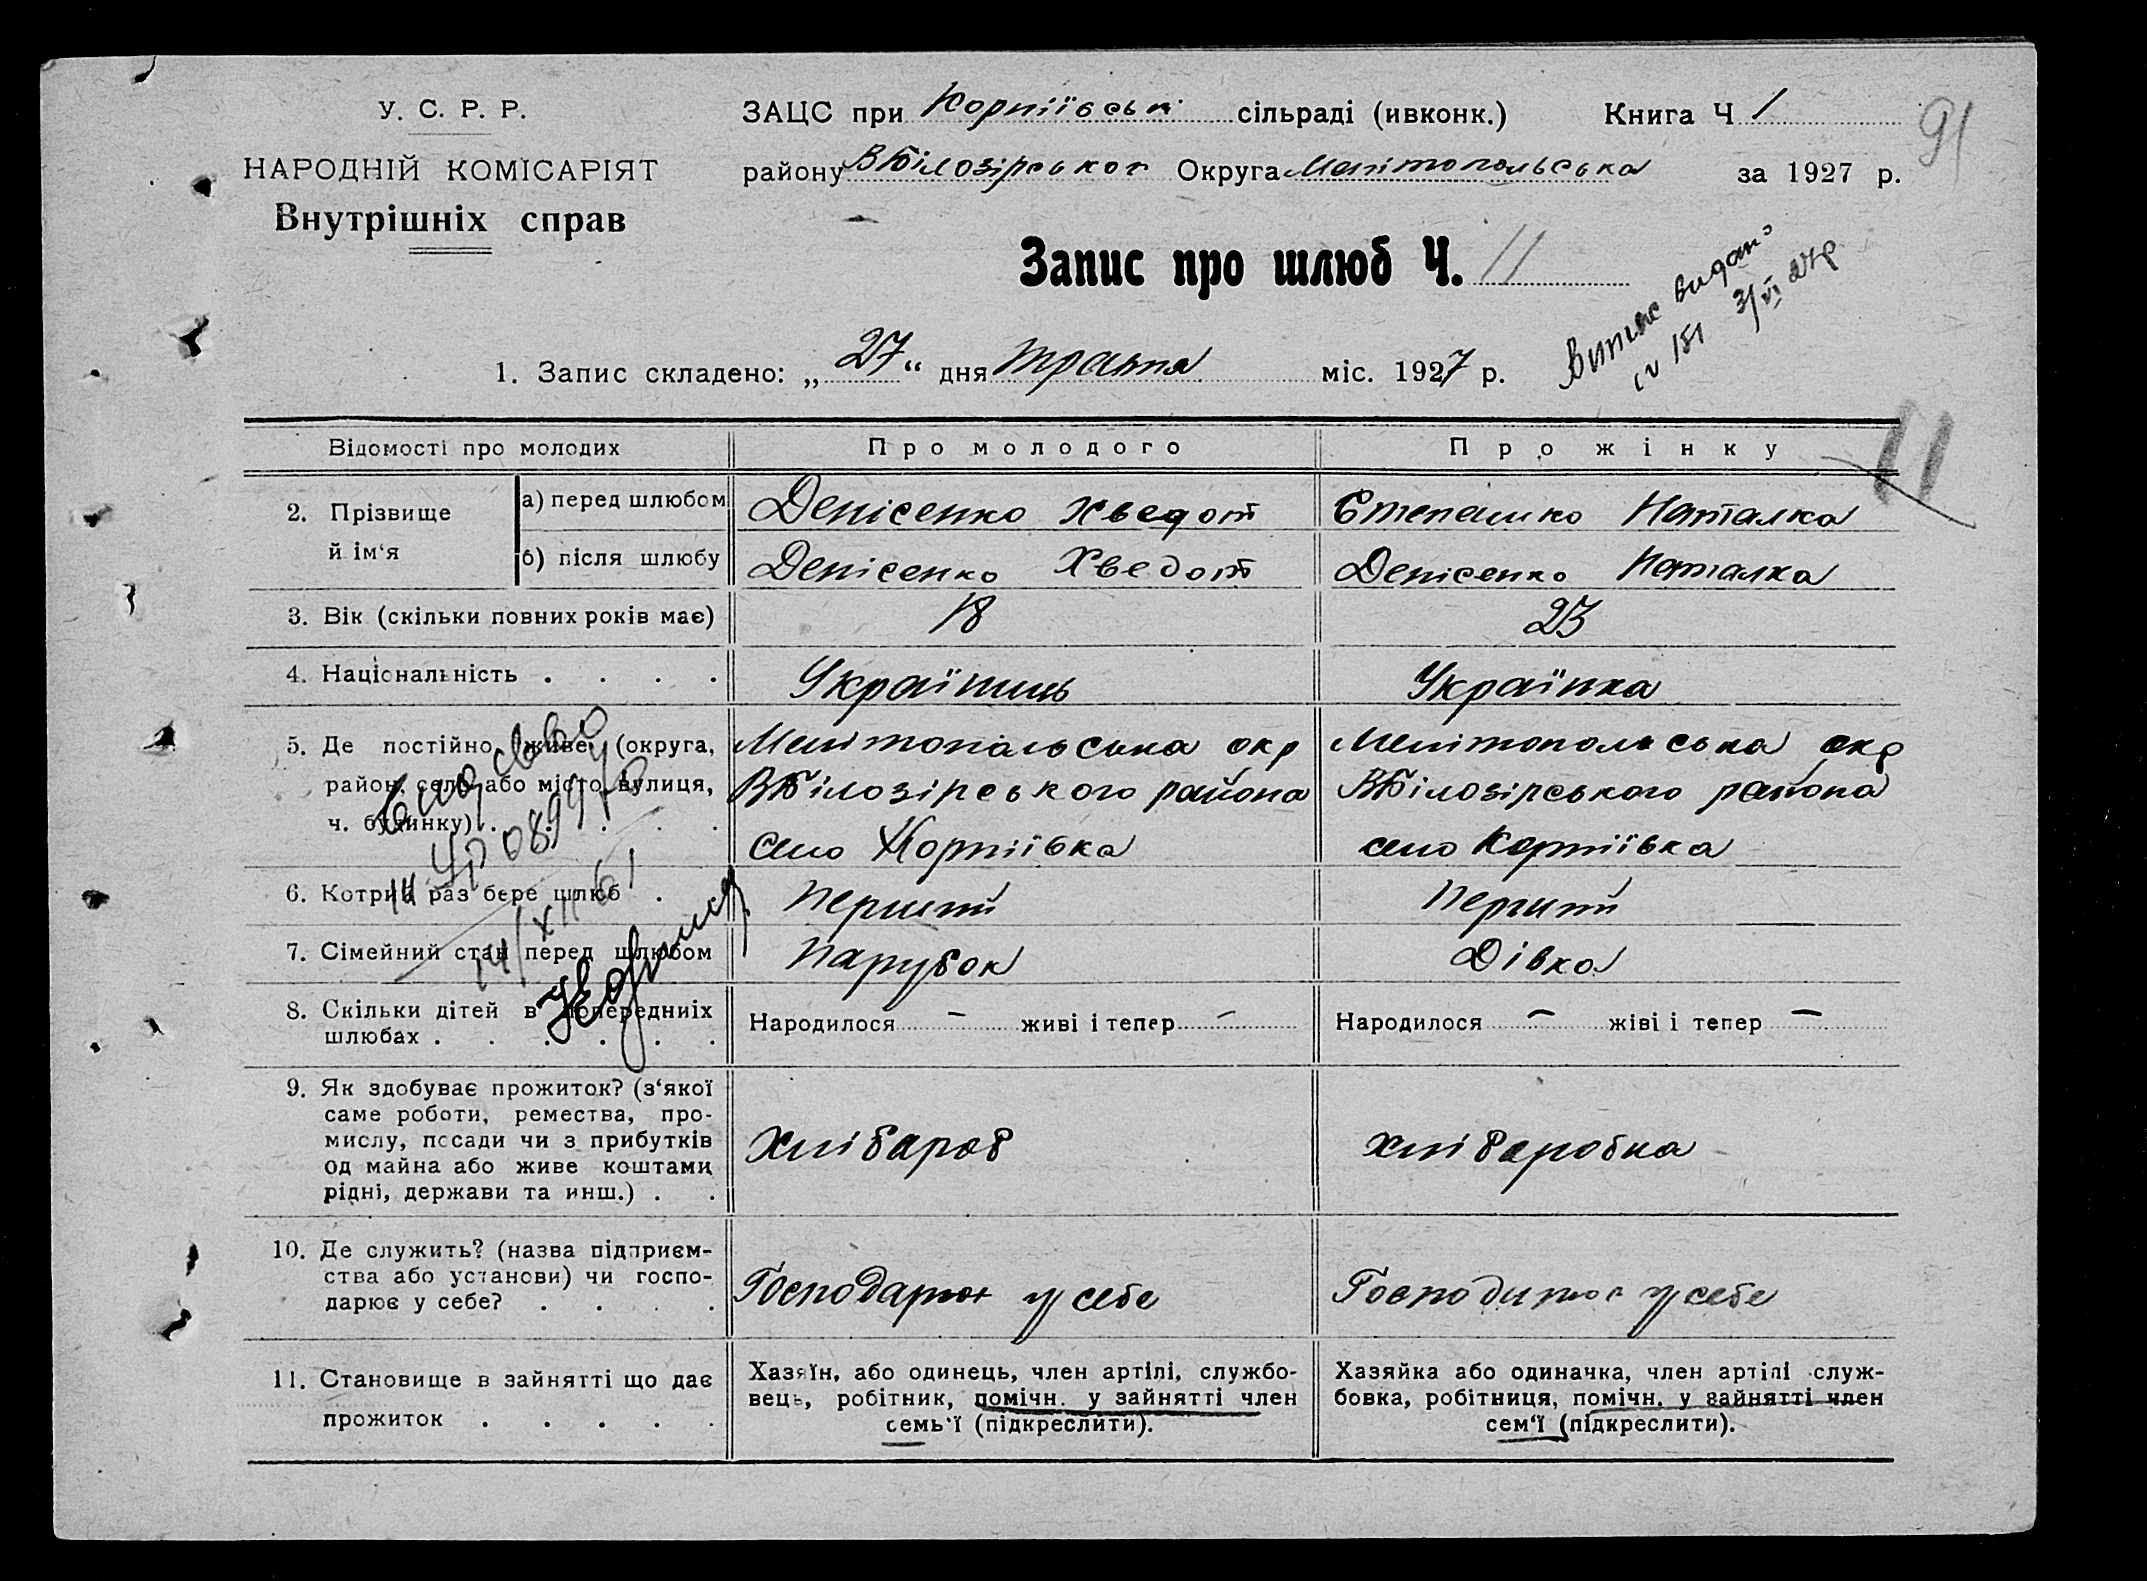 У. С. Р. Р.
НАРОДНІЙ КОМІСАРІЯТ
Внутрішніх справ
ЗАЦС при Корніївські сільраді (ивконк.) Книга Ч 1
91
району ВБілозірськог Округа Мелітопольська за 1927 р.
Запис про шлюб Ч. 11
Витяг видано
151 3/VI 27р
1. Запис складено: „27“ дня травня міс. 1927 р.
Відомості про молодих Про молодого Про жінку
11
2. Прізвище й ім‘я
а) перед шлюбом Денісенко Хведот Степанко Наталка
б) після шлюбу Денісенко Хведот Денісенко Наталка
3. Вік (скільки повних років має) 18 23
4. Національність . . . . Україниць Українка
5. Де постійно живе (округа, Мелітопільська окр Мелітопольська окр
район, село або місто, вулиця, ВБілозірського района ВБілозірського района
ч. будинку) . . . . село Корніївка село Корніївка
6. Котрий раз бере шлюб . Перший Перший
7. Сімейний стан перед шлюбом Парубок Дівка
8. Скільки дітей в попередниіх Народилося – живі і тепер – Народилося – жіві і тепер –
шлюбах . . . . . .
14/XII 61
9. Як здобуває прожиток? (з‘якої
саме роботи, ремества, про-
мислу, посади чи з прибутків Хлібароб хлібаробка
од майна або живе коштами
рідні, держави та инш.) . .
10. Де служить? (назва підприєм-
ства або установи) чи госпо- Господарює у себе Господинює у себе
дарює у себе? . . . .
11. Становище в зайнятті що дає
прожиток . . . . .
Хазяїн, або одинець, член артілі, службо-
вець, робітник, помічн. у зайнятті член
семь‘ї (підкреслити).
Хазяйка або одиначка, член артілі служ-
бовка, робітниця, помічн. у зайнятті член
сем‘ї (підкреслити).